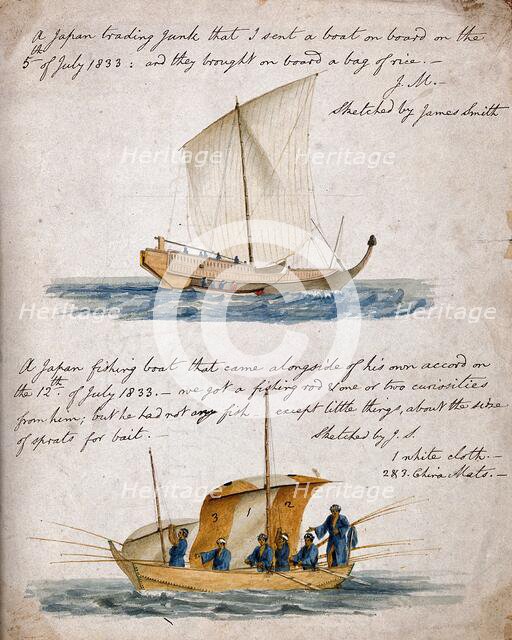 A Japan trading Junk that I sent a boat on board on the
5th of July 1833: and they brought on board a bag of rice. —
J. M. —
Sketched by James Smith
Heritage Heritage
Heritage Heritage
A Japan fishing boat that came alongside of his own accord on
the 12th of July 1833. — we got a fishing rod & one or two curiosities
from him; but he had not any fish — except little things, about the size
of sprats for bait. —
Sketched by J. S.
1 white cloth. —
2 & 3. China Mats. —
Heritage Heritage
3 1 2
Heritage Heritage